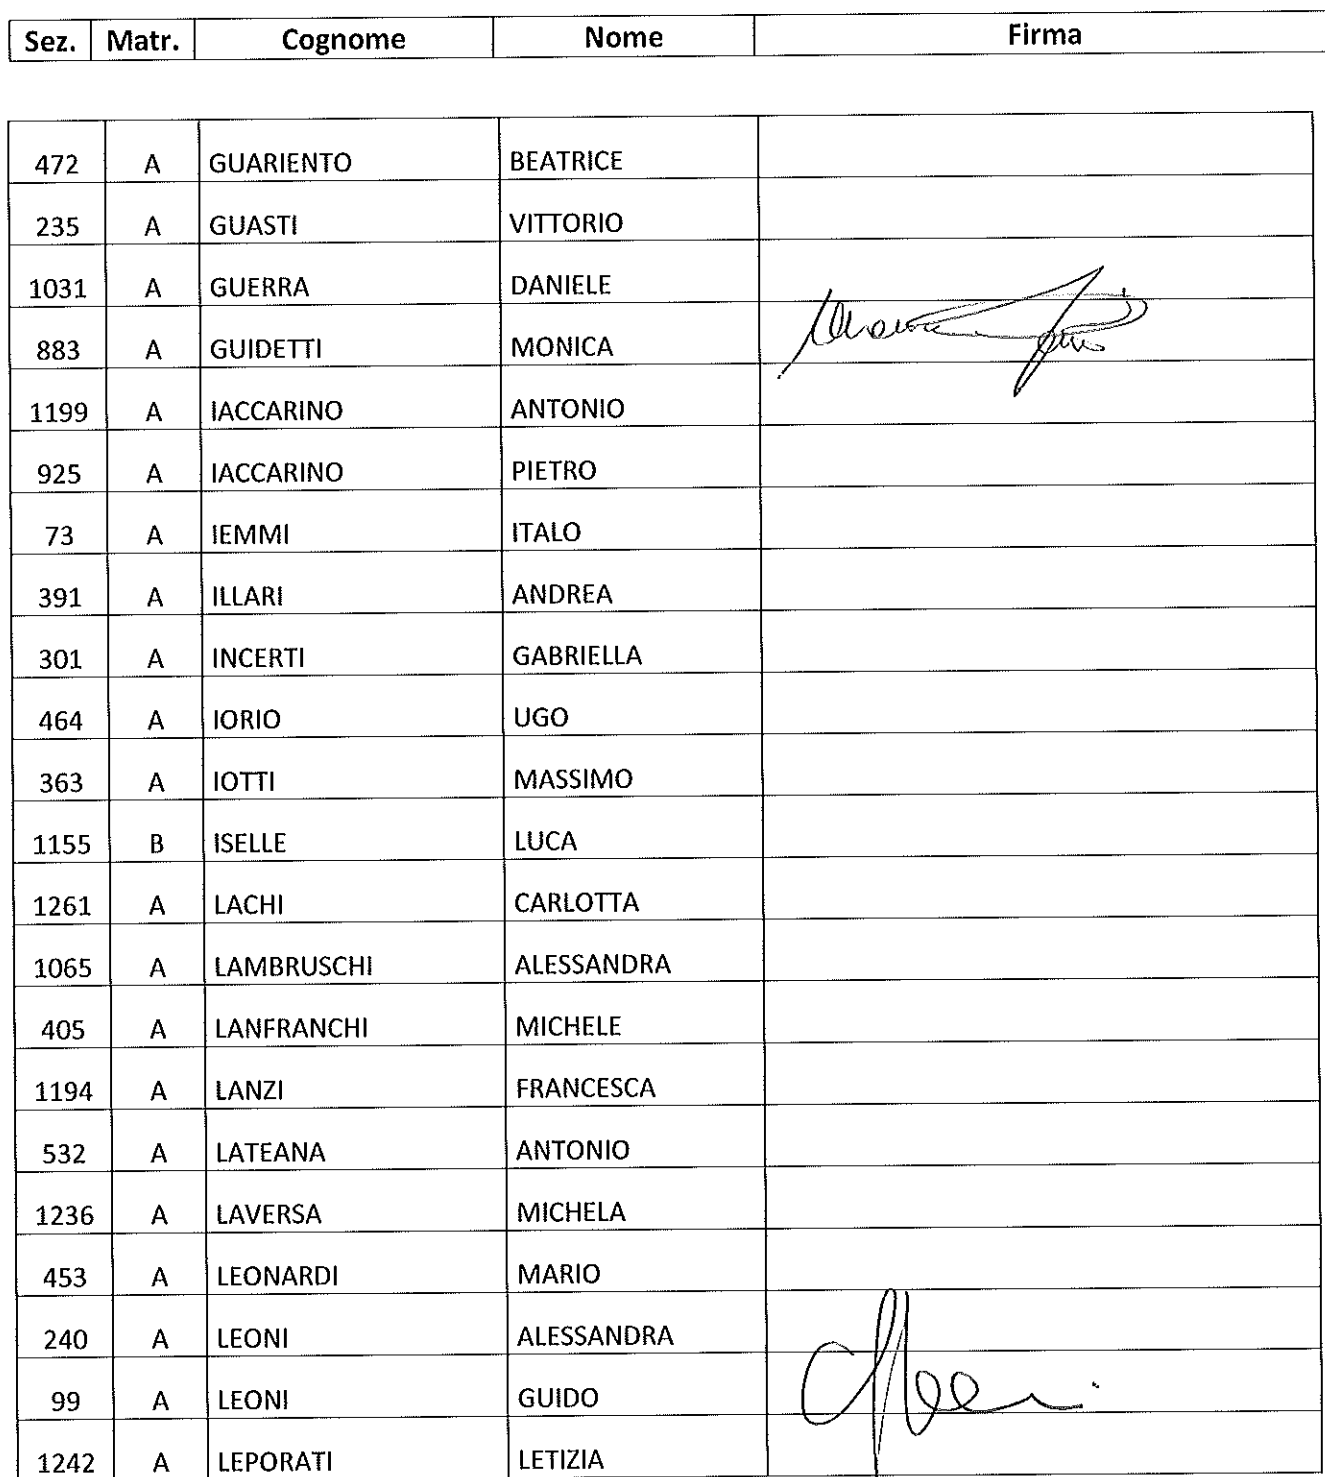 Sez. Matr. Cognome Nome Firma
472 A GUARIENTO BEATRICE
235 A GUASTI VITTORIO
1031 A GUERRA DANIELE
883 A GUIDETTI MONICA
1199 A IACCARINO ANTONIO
925 A IACCARINO PIETRO
73 A IEMMI ITALO
391 A ILLARI ANDREA
301 A INCERTI GABRIELLA
464 A IORIO UGO
363 A IOTTI MASSIMO
1155 B ISELLE LUCA
1261 A LACHI CARLOTTA
1065 A LAMBRUSCHI ALESSANDRA
405 A LANFRANCHI MICHELE
1194 A LANZI FRANCESCA
532 A LATEANA ANTONIO
1236 A LAVERSA MICHELA
453 A LEONARDI MARIO
240 A LEONI ALESSANDRA
99 A LEONI GUIDO
1242 A LEPORATI LETIZIA